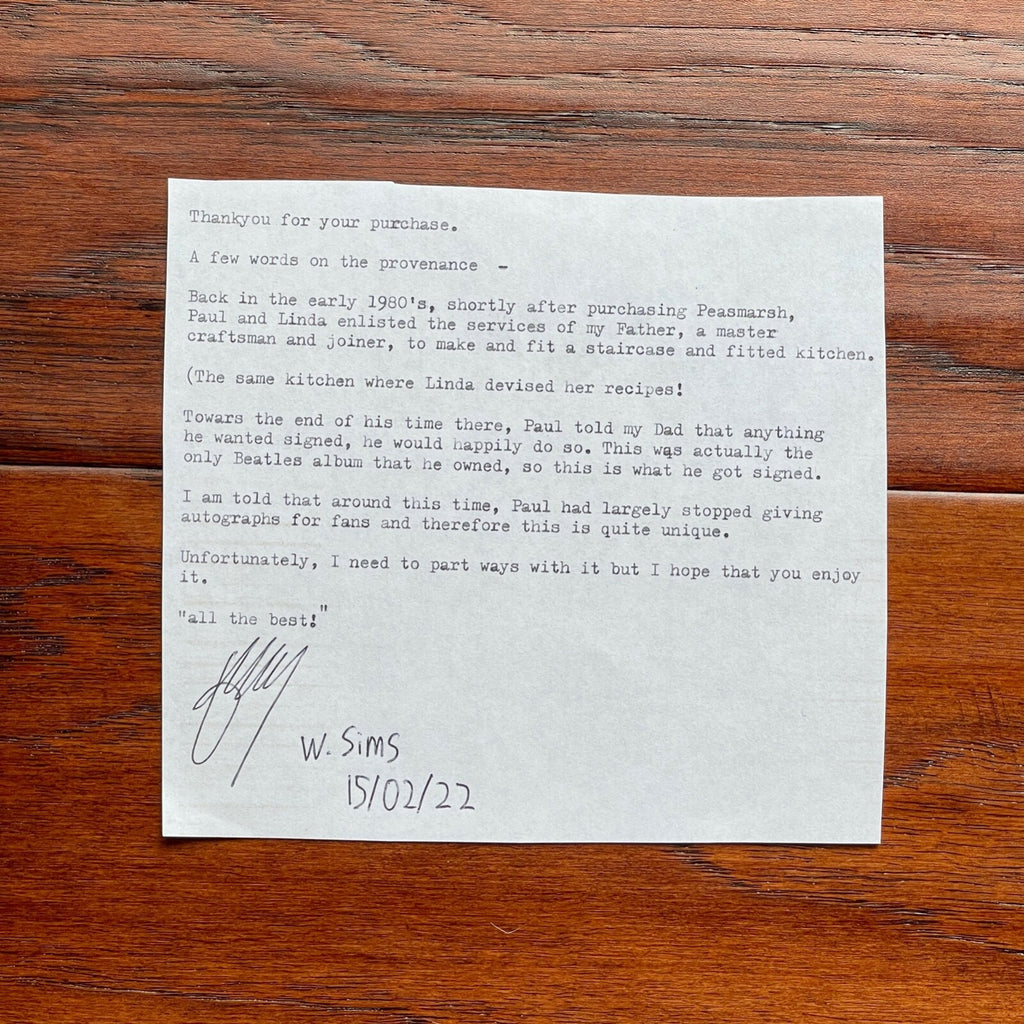 Thankyou for your purchase.
A few words on the provenance -
Back in the early 1980's, shortly after purchasing Peasmarsh,
Paul and Linda enlisted the services of my Father, a master
craftsman and joiner, to make and fit a staircase and fitted kitchen.
(The same kitchen where Linda devised her recipes!
Towars the end of his time there, Paul told my Dad that anything
he wanted signed, he would happily do so. This was actually the
only Beatles album that he owned, so this is what he got signed.
I am told that around this time, Paul had largely stopped giving
autographs for fans and therefore this is quite unique.
Unfortunately, I need to part ways with it but I hope that you enjoy
it.
"all the best!"
W. Sims
15/02/22